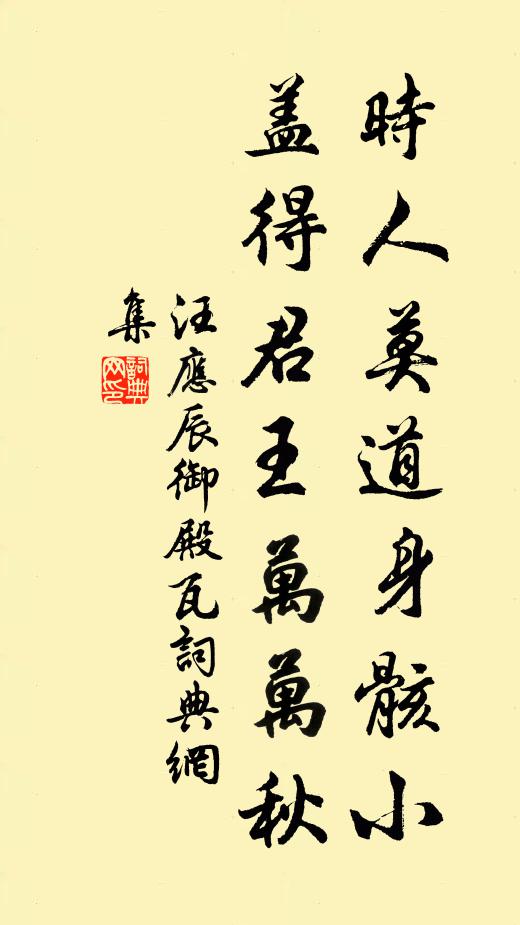 時人莫道身骸小
盖得君王萬萬秋
汪應辰御殿瓦詞典網
集
詞典
网印